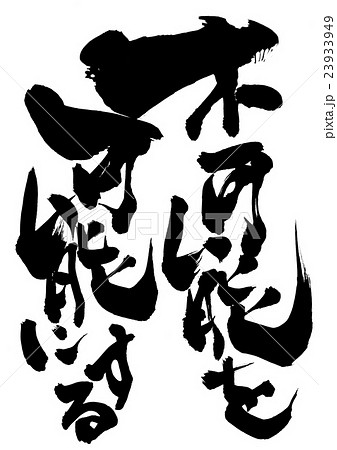 不可能を
可能にする
PIXTA
pixta.jp - 23933949